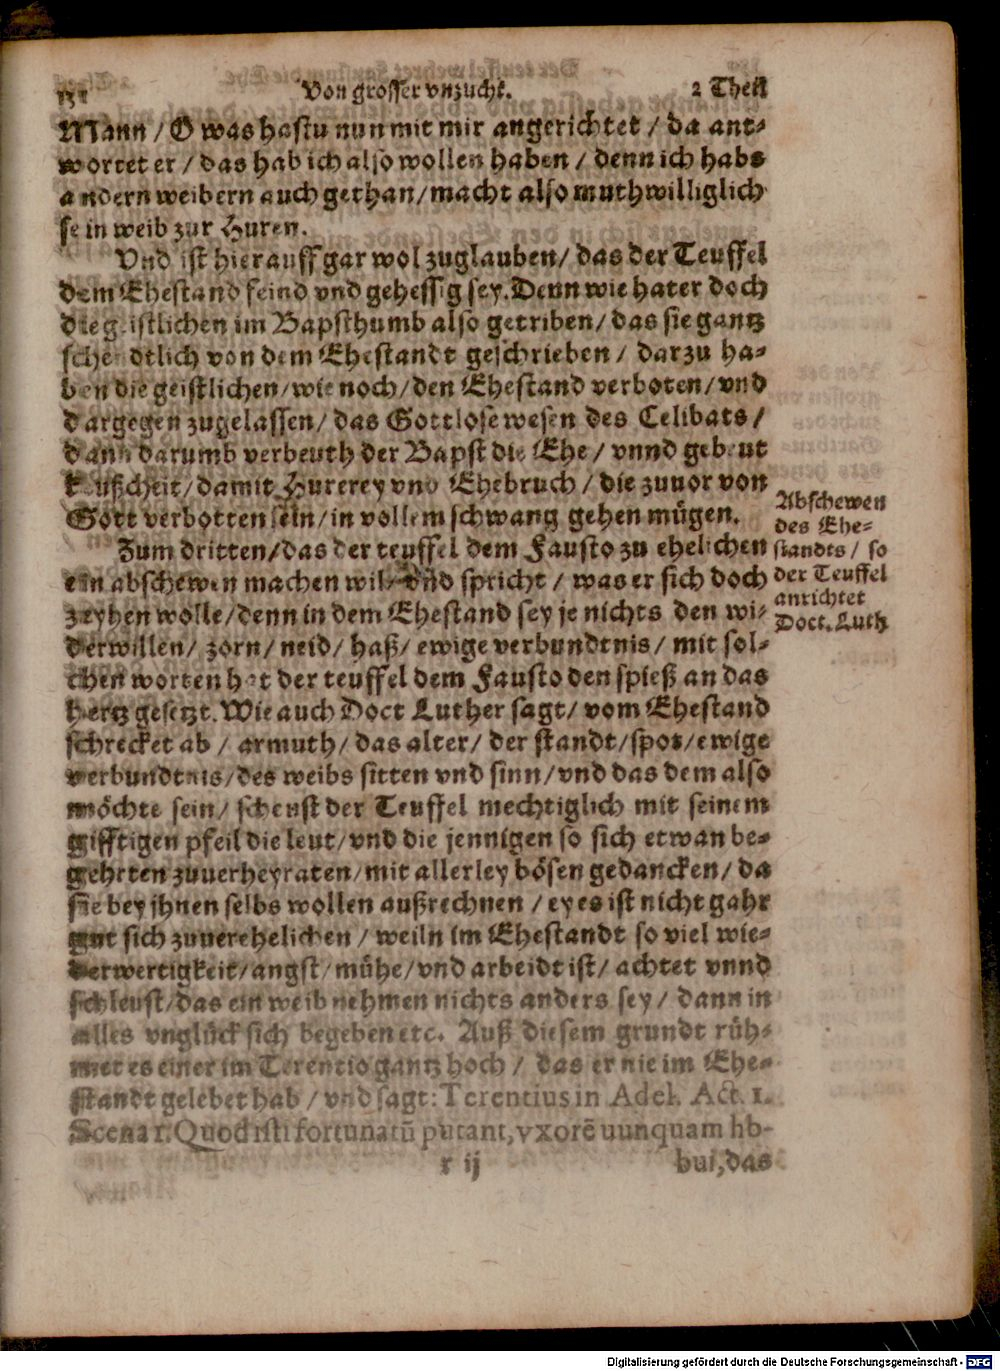 131 Von grosser vnzucht. 2 Theil
Mann / O was hastu nun mit mir angerichtet / da ant-
wortet er / das hab ich also wollen haben / denn ich habs
andern weibern auch gethan / macht also muthwilliglich
sein weib zur Huren.
Vnd ist hierauff gar wol zuglauben / das der Teuffel
dem Ehestand feind vnd gehessig sey. Denn wie hat er doch
die geistlichen im Bapsthumb also getriben / das sie gantz
schendtlich von dem Ehestandt geschrieben / darzu ha-
ben die geistlichen / wie noch / den Ehestand verboten / vnd
dargegen zugelassen / das Gottlose wesen des Celibats /
dann darumb verbeuth der Bapst die Ehe / vnnd gebeut
keußcheit / damit Hurerey vnd Ehebruch / die zuuor von
Gott verbotten sein / in vollem schwang gehen mügen.
Zum dritten / das der teuffel dem Fausto zu ehelichen
ein abschewen machen wil / vnd spricht / was er sich doch
zeyhen wolle / denn in dem Ehestand sey je nichts den wi-
derwillen / zorn / neid / haß / ewige verbundtnis / mit sol-
chen worten hat der teuffel dem Fausto den spieß an das
hertz gesetzt. Wie auch Doct Luther sagt / vom Ehestand
schrecket ab / armuth / das alter / der standt / spot / ewige
verbundtnis / des weibs sitten vnd sinn / vnd das dem also
möchte sein / scheust der Teuffel mechtiglich mit seinem
gifftigen pfeil die leut / vnd die jennigen so sich etwan be-
gehrten zuuerheyraten / mit allerley bösen gedancken / da
sie bey jhnen selbs wollen außrechnen / ey es ist nicht gahr
gut sich zuuerehelichen / weiln im Ehestandt so viel wie-
derwertigkeit / angst / mühe / vnd arbeidt ist / achtet vnnd
schleust / das ein weib nehmen nichts anders sey / dann in
alles vnglück sich begeben etc. Auß diesem grundt rüh-
met es einer im Terentio gantz hoch / das er nie im Ehe-
standt gelebet hab / vnd sagt: Terentius in Adel. Act. 1.
Scena 1. Quod isti fortunatū putant, vxorē nunquam hb-
r ij bui, das
Abschewen
des Ehe-
standts / so
der Teuffel
anrichtet
Doct. Luth
Digitalisierung gefördert durch die Deutsche Forschungsgemeinschaft - DFG